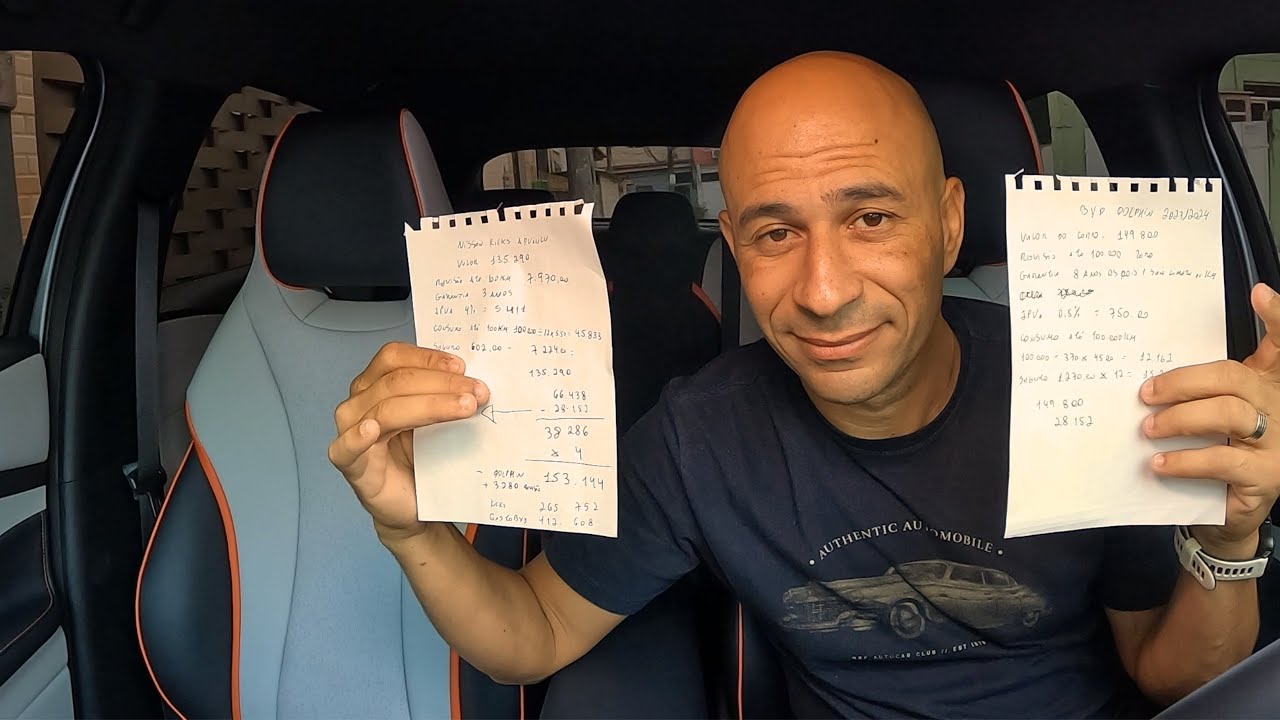 NISSAN KICKS ADVANCE
VALOR 135.290
REVISÃO ATÉ 60MKM 7.970,00
GARANTIA 3 ANOS
IPVA 4% = 5411
CONSUMO ATÉ 100KM 100.000÷12x5,50= 45.833
SEGURO 602,00 - 7.224,00 =
135.290
66.438
- 28.152
38 286
x 4
153.144
- DOLPHIN
+ 3280
KICKS 265.752
GASTOBYD 112.608
BYD DOLPHIN 2023/2024
VALOR DO CARRO. 149.800
REVISÃO ATÉ 100.000
GARANTIA 8 ANOS OU SEM LIMITE KM
IPVA 0.5% = 750.00
CONSUMO ATÉ 100.000KM
100.000 ÷ 370 x 45,00 = 12.162
SEGURO 1270,00 x 12 =
149.800
28.152
• AUTHENTIC AUTOMOBILE •
AUTOCAR CLUB // EST